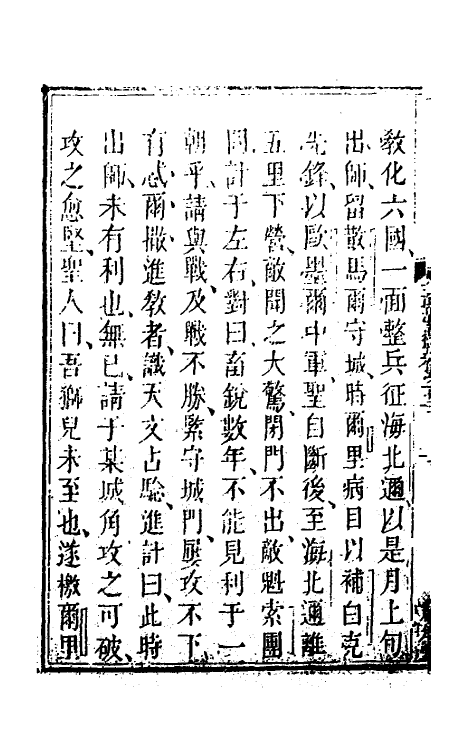 教化六國一面整兵征海北通以是月上旬
出師留散馬爾守城時爾里病目以補白克
先鋒以歐墨爾中軍聖自斷後至海北通離
五里下營敵聞之大驚閉門不出敵魁索團
問計于左右對曰畜銳數年不能見利于一
朝乎請與戰及戰不勝緊守城門屢攻不下
有忒爾撒進教者識天文占驗進計曰此時
出師未有利也無已請于某城角攻之可破
攻之愈堅聖人曰吾獅兒未至也遂檄爾里